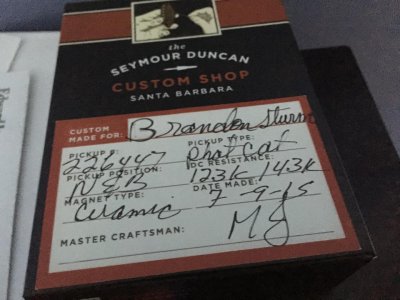 the
SEYMOUR DUNCAN
CUSTOM SHOP
SANTA BARBARA
CUSTOM MADE FOR: Brandon Sturm
PICKUP #: 226447 PICKUP TYPE: Phat Cat
PICKUP POSITION: N&B DC RESISTANCE: 12.3K 14.3K
MAGNET TYPE: Ceramic DATE MADE: 7-9-15
MASTER CRAFTSMAN: MJ